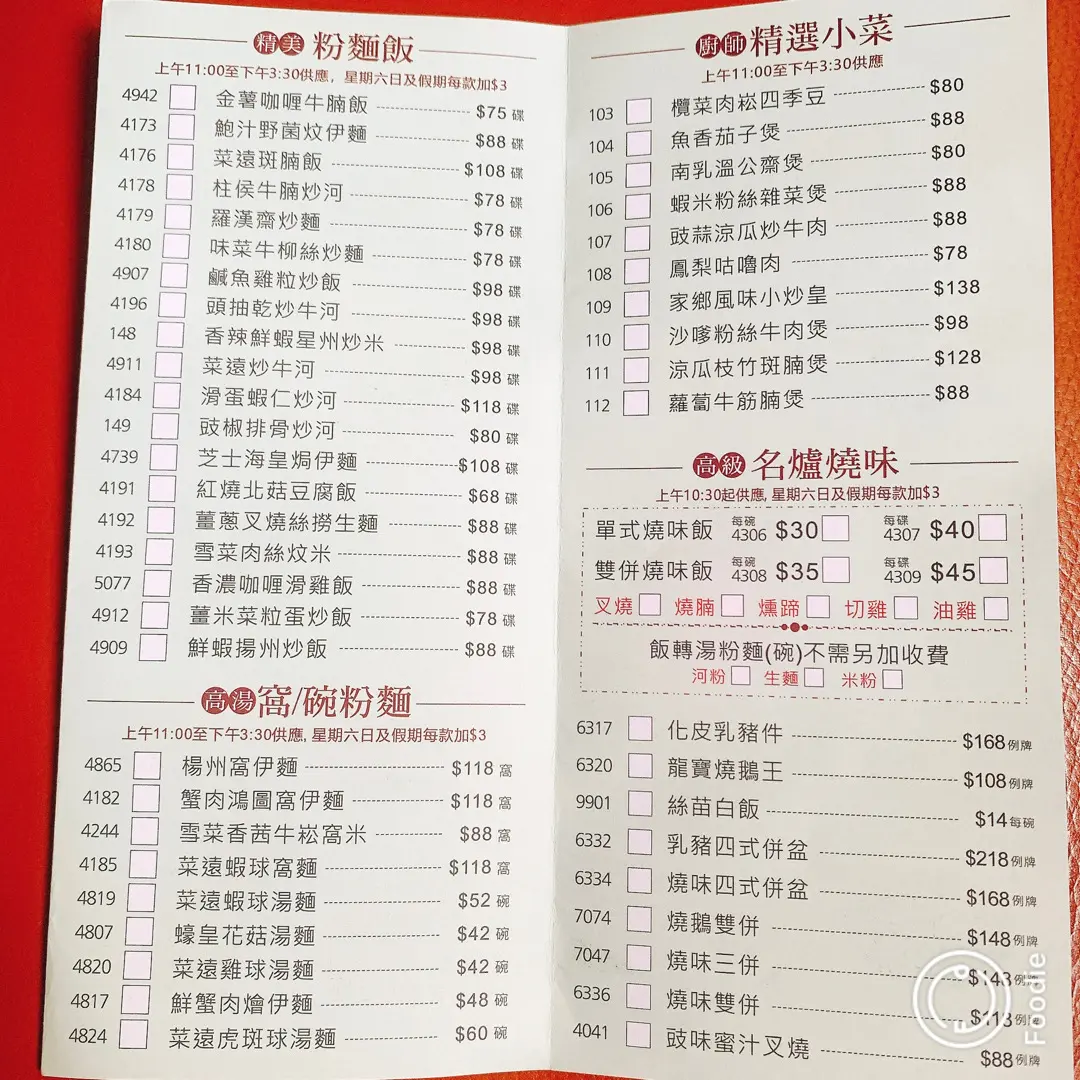 精美 粉麵飯
上午11:00至下午3:30供應，星期六日及假期每款加$3
4942 金薯咖喱牛腩飯 $75 碟
4173 鮑汁野菌炆伊麵 $88 碟
4176 菜遠斑腩飯 $108 碟
4178 柱侯牛腩炒河 $78 碟
4179 羅漢齋炒麵 $78 碟
4180 味菜牛柳絲炒麵 $78 碟
4907 鹹魚雞粒炒飯 $98 碟
4196 頭抽乾炒牛河 $98 碟
148 香辣鮮蝦星州炒米 $98 碟
4911 菜遠炒牛河 $98 碟
4184 滑蛋蝦仁炒河 $118 碟
149 豉椒排骨炒河 $80 碟
4739 芝士海皇焗伊麵 $108 碟
4191 紅燒北菇豆腐飯 $68 碟
4192 薑蔥叉燒絲撈生麵 $88 碟
4193 雪菜肉絲炆米 $88 碟
5077 香濃咖喱滑雞飯 $88 碟
4912 薑米菜粒蛋炒飯 $78 碟
4909 鮮蝦揚州炒飯 $88 碟
高湯 窩/碗粉麵
上午11:00至下午3:30供應, 星期六日及假期每款加$3
4865 楊州窩伊麵 $118 窩
4182 蟹肉鴻圖窩伊麵 $118 窩
4244 雪菜香茜牛崧窩米 $88 窩
4185 菜遠蝦球窩麵 $118 窩
4819 菜遠蝦球湯麵 $52 碗
4807 蠔皇花菇湯麵 $42 碗
4820 菜遠雞球湯麵 $42 碗
4817 鮮蟹肉燴伊麵 $48 碗
4824 菜遠虎斑球湯麵 $60 碗
廚師 精選小菜
上午11:00至下午3:30供應
103 欖菜肉崧四季豆 $80
104 魚香茄子煲 $88
105 南乳溫公齋煲 $80
106 蝦米粉絲雜菜煲 $88
107 豉蒜涼瓜炒牛肉 $88
108 鳳梨咕嚕肉 $78
109 家鄉風味小炒皇 $138
110 沙嗲粉絲牛肉煲 $98
111 涼瓜枝竹斑腩煲 $128
112 蘿蔔牛筋腩煲 $88
高級 名爐燒味
上午10:30起供應, 星期六日及假期每款加$3
單式燒味飯 每碗 4306 $30 每碟 4307 $40
雙併燒味飯 每碗 4308 $35 每碟 4309 $45
叉燒 燒腩 燻蹄 切雞 油雞
飯轉湯粉麵(碗)不需另加收費
河粉 生麵 米粉
6317 化皮乳豬件 $168 例牌
6320 龍寶燒鵝王 $108 例牌
9901 絲苗白飯 $14 每碗
6332 乳豬四式併盆 $218 例牌
6334 燒味四式併盆 $168 例牌
7074 燒鵝雙併 $148 例牌
7047 燒味三併 $143 例牌
6336 燒味雙併 $113 例牌
4041 豉味蜜汁叉燒 $88 例牌
Foodie